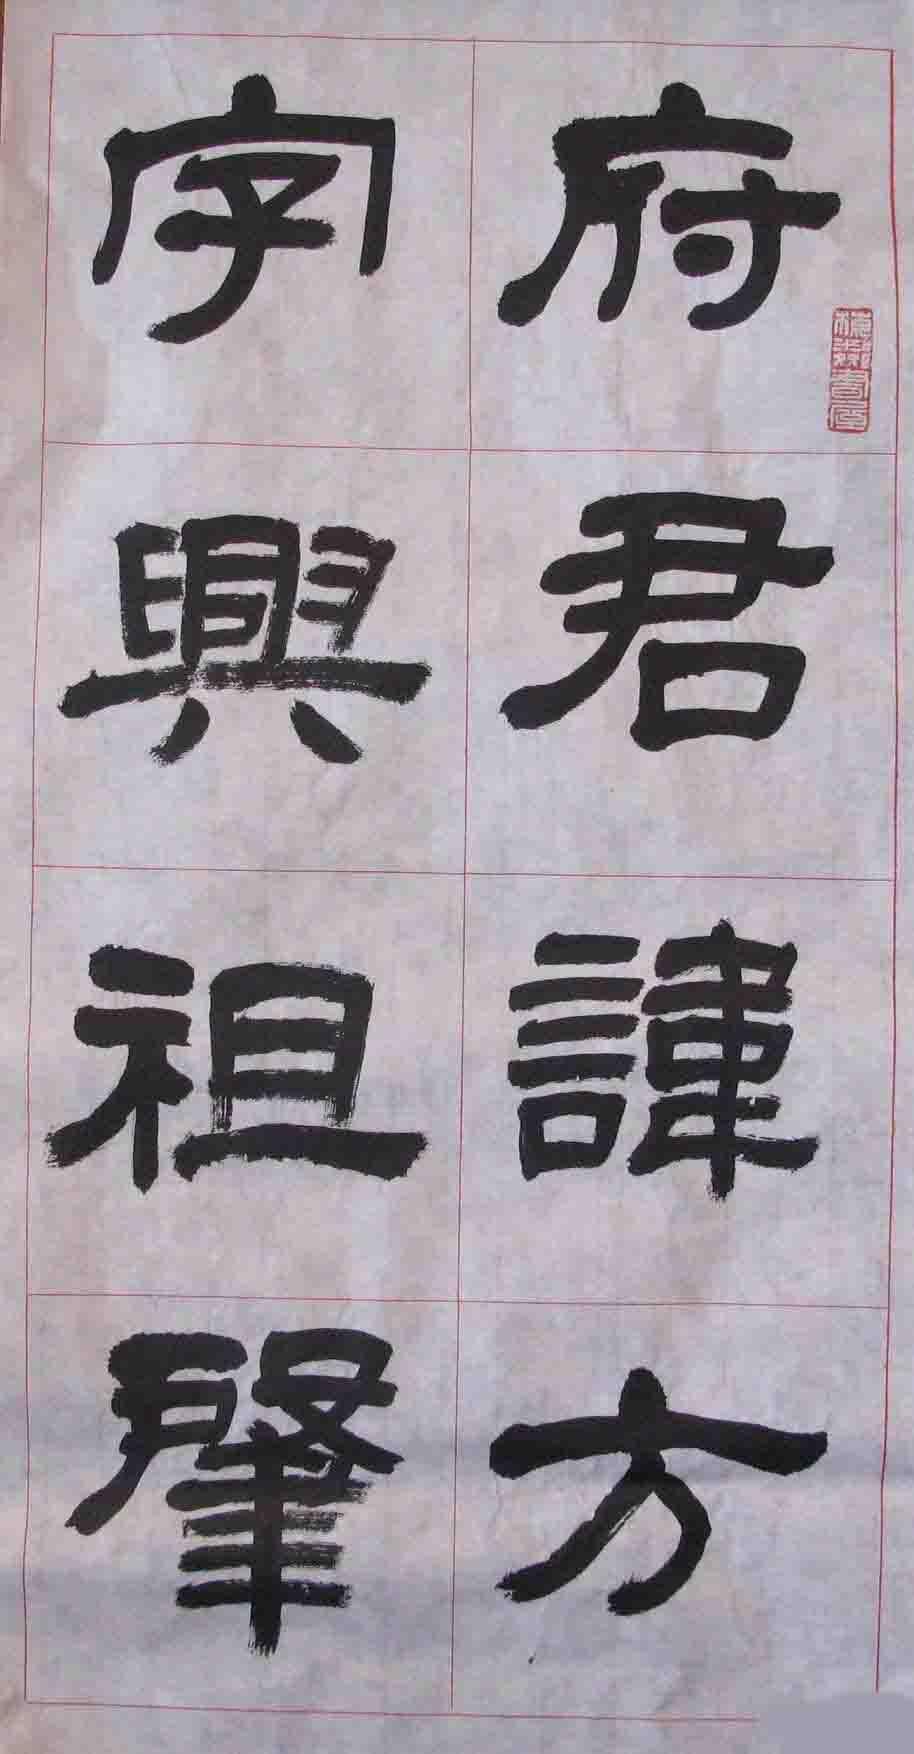 府君諱方
字興祖肇